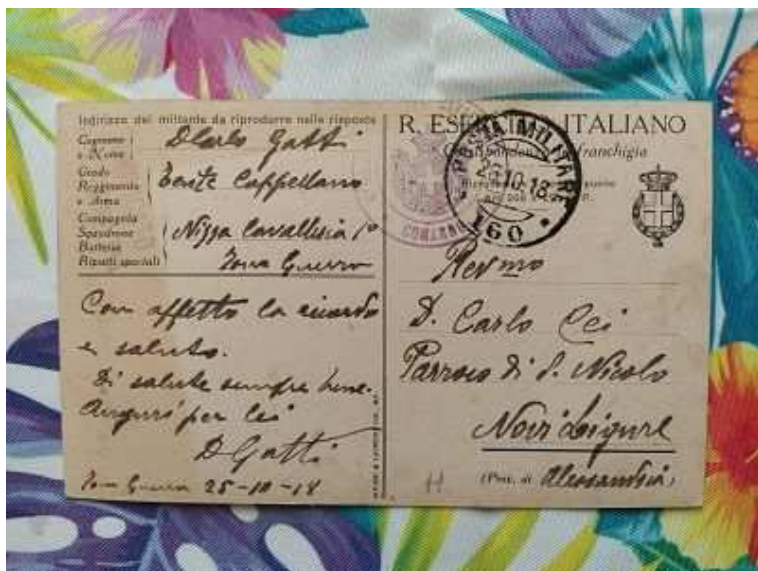 Indirizzo del mittente da riprodurre nelle risposte
Cognome e Nome
D Carlo Gatti
Grado Reggimento e Arma
Tente Cappellano
Compagnia Squadrone Batteria Riparti speciali
Nizza Cavalleria 1º
Zona Guerra
Con affetto la ricordo
e saluto.
Di salute sempre bene.
Auguri per lei
D Gatti
Zona Guerra 25-10-18
R. ESERCITO ITALIANO
Corrispondenza in franchigia
POSTA MILITARE
26.10.18
160
COMANDO
Revmo
D. Carlo Cei
Parroco di S. Nicolo
Novi Ligure
(Prov. di Alessandria)